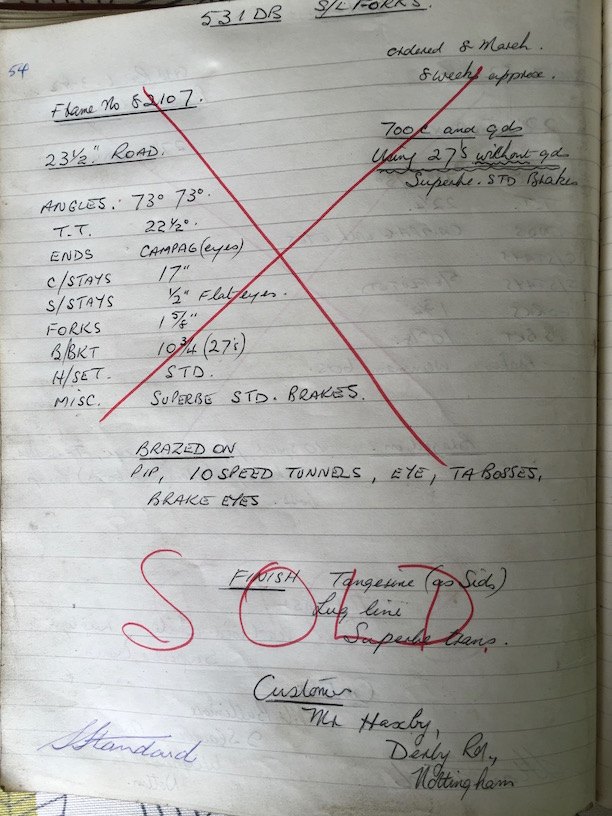 531 DB S/L FORKS.
54
ordered 8 March.
8 weeks approx.
Frame No 82107.
700C and gds
Using 27's without gds
Superbe. STD Brakes
23½" ROAD.
ANGLES. 73° 73°.
T.T. 22½".
ENDS CAMPAG (eyes)
C/STAYS 17"
S/STAYS ½" Flat eyes.
FORKS 1 5/8"
B/BKT 10 3/4 (27's)
H/SET. STD.
MISC. SUPERBE STD. BRAKES.
BRAZED ON
PIP, 10 SPEED TUNNELS, EYE, TA BOSSES,
BRAKE EYES
SOLD
FINISH Tangerine (as Sids)
Lug line
Superbe trans.
Customer
Mr Haxby,
Derby Rd.,
Nottingham
Standard